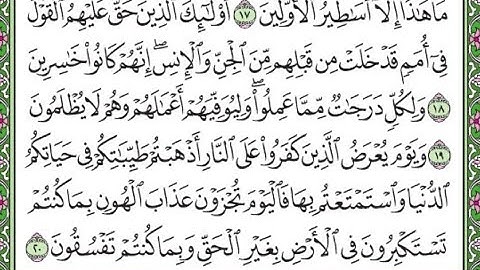 مَا هَٰذَآ إِلَّآ أَسَٰطِيرُ ٱلۡأَوَّلِينَ ١٧ أُوْلَٰٓئِكَ ٱلَّذِينَ حَقَّ عَلَيۡهِمُ ٱلۡقَوۡلُ
فِيٓ أُمَمٖ قَدۡ خَلَتۡ مِن قَبۡلِهِم مِّنَ ٱلۡجِنِّ وَٱلۡإِنسِۖ إِنَّهُمۡ كَانُواْ خَٰسِرِينَ
١٨ وَلِكُلّٖ دَرَجَٰتٞ مِّمَّا عَمِلُواْۖ وَلِيُوَفِّيَهُمۡ أَعۡمَٰلَهُمۡ وَهُمۡ لَا يُظۡلَمُونَ
١٩ وَيَوۡمَ يُعۡرَضُ ٱلَّذِينَ كَفَرُواْ عَلَى ٱلنَّارِ أَذۡهَبۡتُمۡ طَيِّبَٰتِكُمۡ فِي حَيَاتِكُمُ
ٱلدُّنۡيَا وَٱسۡتَمۡتَعۡتُم بِهَا فَٱلۡيَوۡمَ تُجۡزَوۡنَ عَذَابَ ٱلۡهُونِ بِمَا كُنتُمۡ
تَسۡتَكۡبِرُونَ فِي ٱلۡأَرۡضِ بِغَيۡرِ ٱلۡحَقِّ وَبِمَا كُنتُمۡ تَفۡسُقُونَ ٢٠